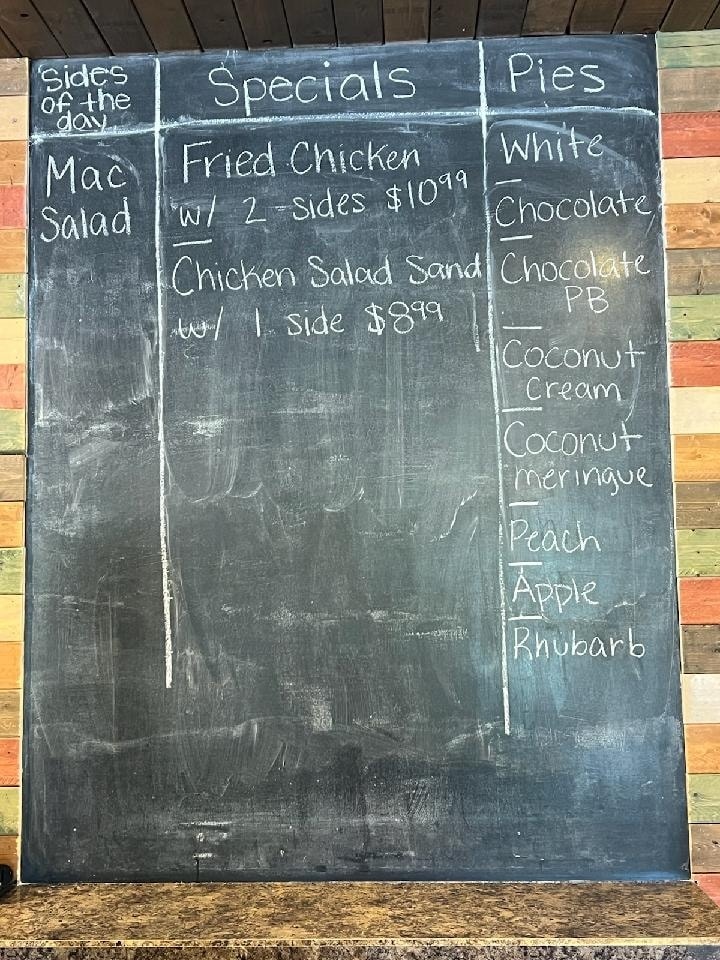 Sides
of the
day
Mac
Salad
Specials
Fried Chicken
w/ 2-sides $10⁹⁹
Chicken Salad Sand
w/ 1 side $8⁹⁹
Pies
White
Chocolate
Chocolate
PB
Coconut
Cream
Coconut
meringue
Peach
Apple
Rhubarb